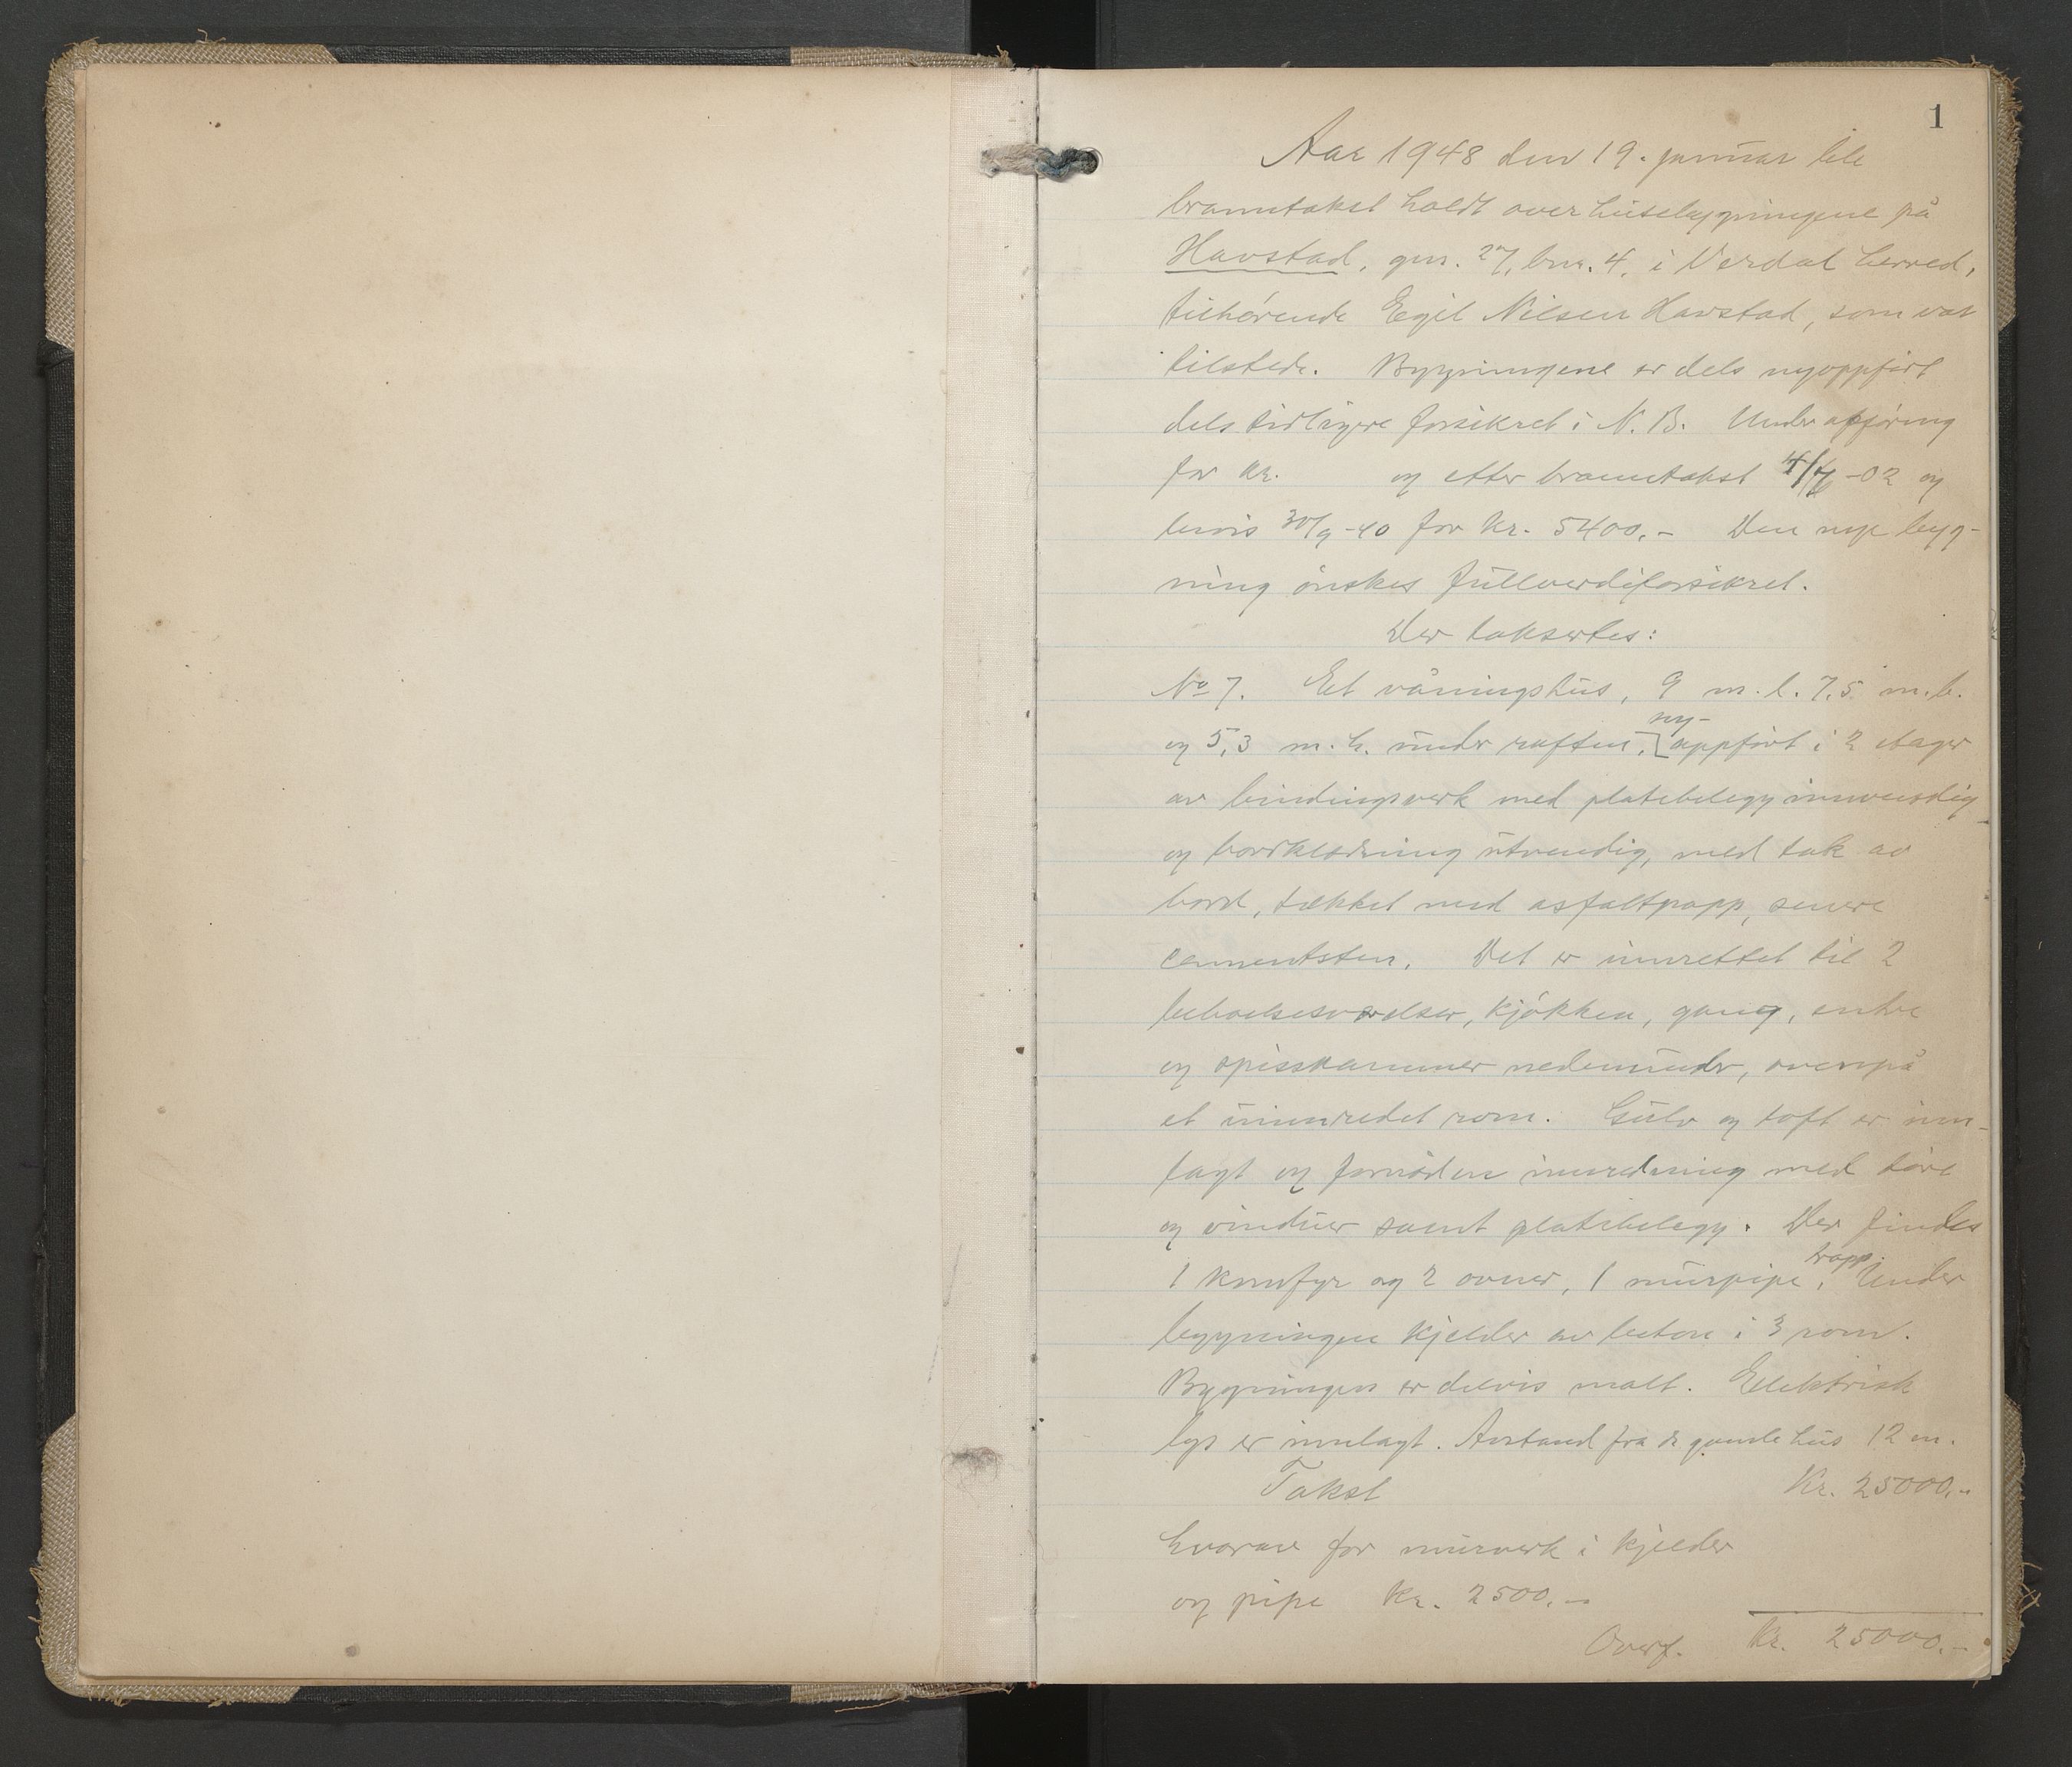 1
Aar 1948 den 19. januar ble
branntakst holdt over husebygningene på
Havstad, gnr. 27, bnr. 4, i Verdal herred,
tilhørende Egil Nilsen Havstad, som var
tilstede. Bygningene er dels nyoppført
dels tidligere forsikret i N. B. Under oppføring
for kr. og etter branntakst 4/7 -02 og
bevis 30/9 -40 for kr. 5400.- Den nye byg-
ning ønskes fullverdiforsikret.
Der taksertes:
No 7. Et våningshus, 9 m. l. 7,5 m. b.
og 5,3 m. h. under raften, ny-
oppført i 2 etager
av bindingsverk med platebelegg innvendig
og bordklædning utvendig, med tak av
bord, tækket med asfaltpapp, senere
cementsten. Det er innrettet til 2
beboelsesværelser, kjøkken, gang, entre
og spisskammer nedenunder, ovenpå
et uinnredet rom. Gulv og loft er inn-
lagt og fornøden innredning med døre
og vinduer samt platebelegg. Der findes
1 komfyr og 2 ovner, 1 murpipe, trapp. Under
bygningen kjelder av beton i 3 rom.
Bygningen er delvis malt. Elektrisk
lys er innlagt. Avstand fra de gamle hus 12 m.
Takst Kr. 25000.-
hvorav for murverk i kjelder
og pipe kr. 2500.-
Overf. Kr. 25000.-